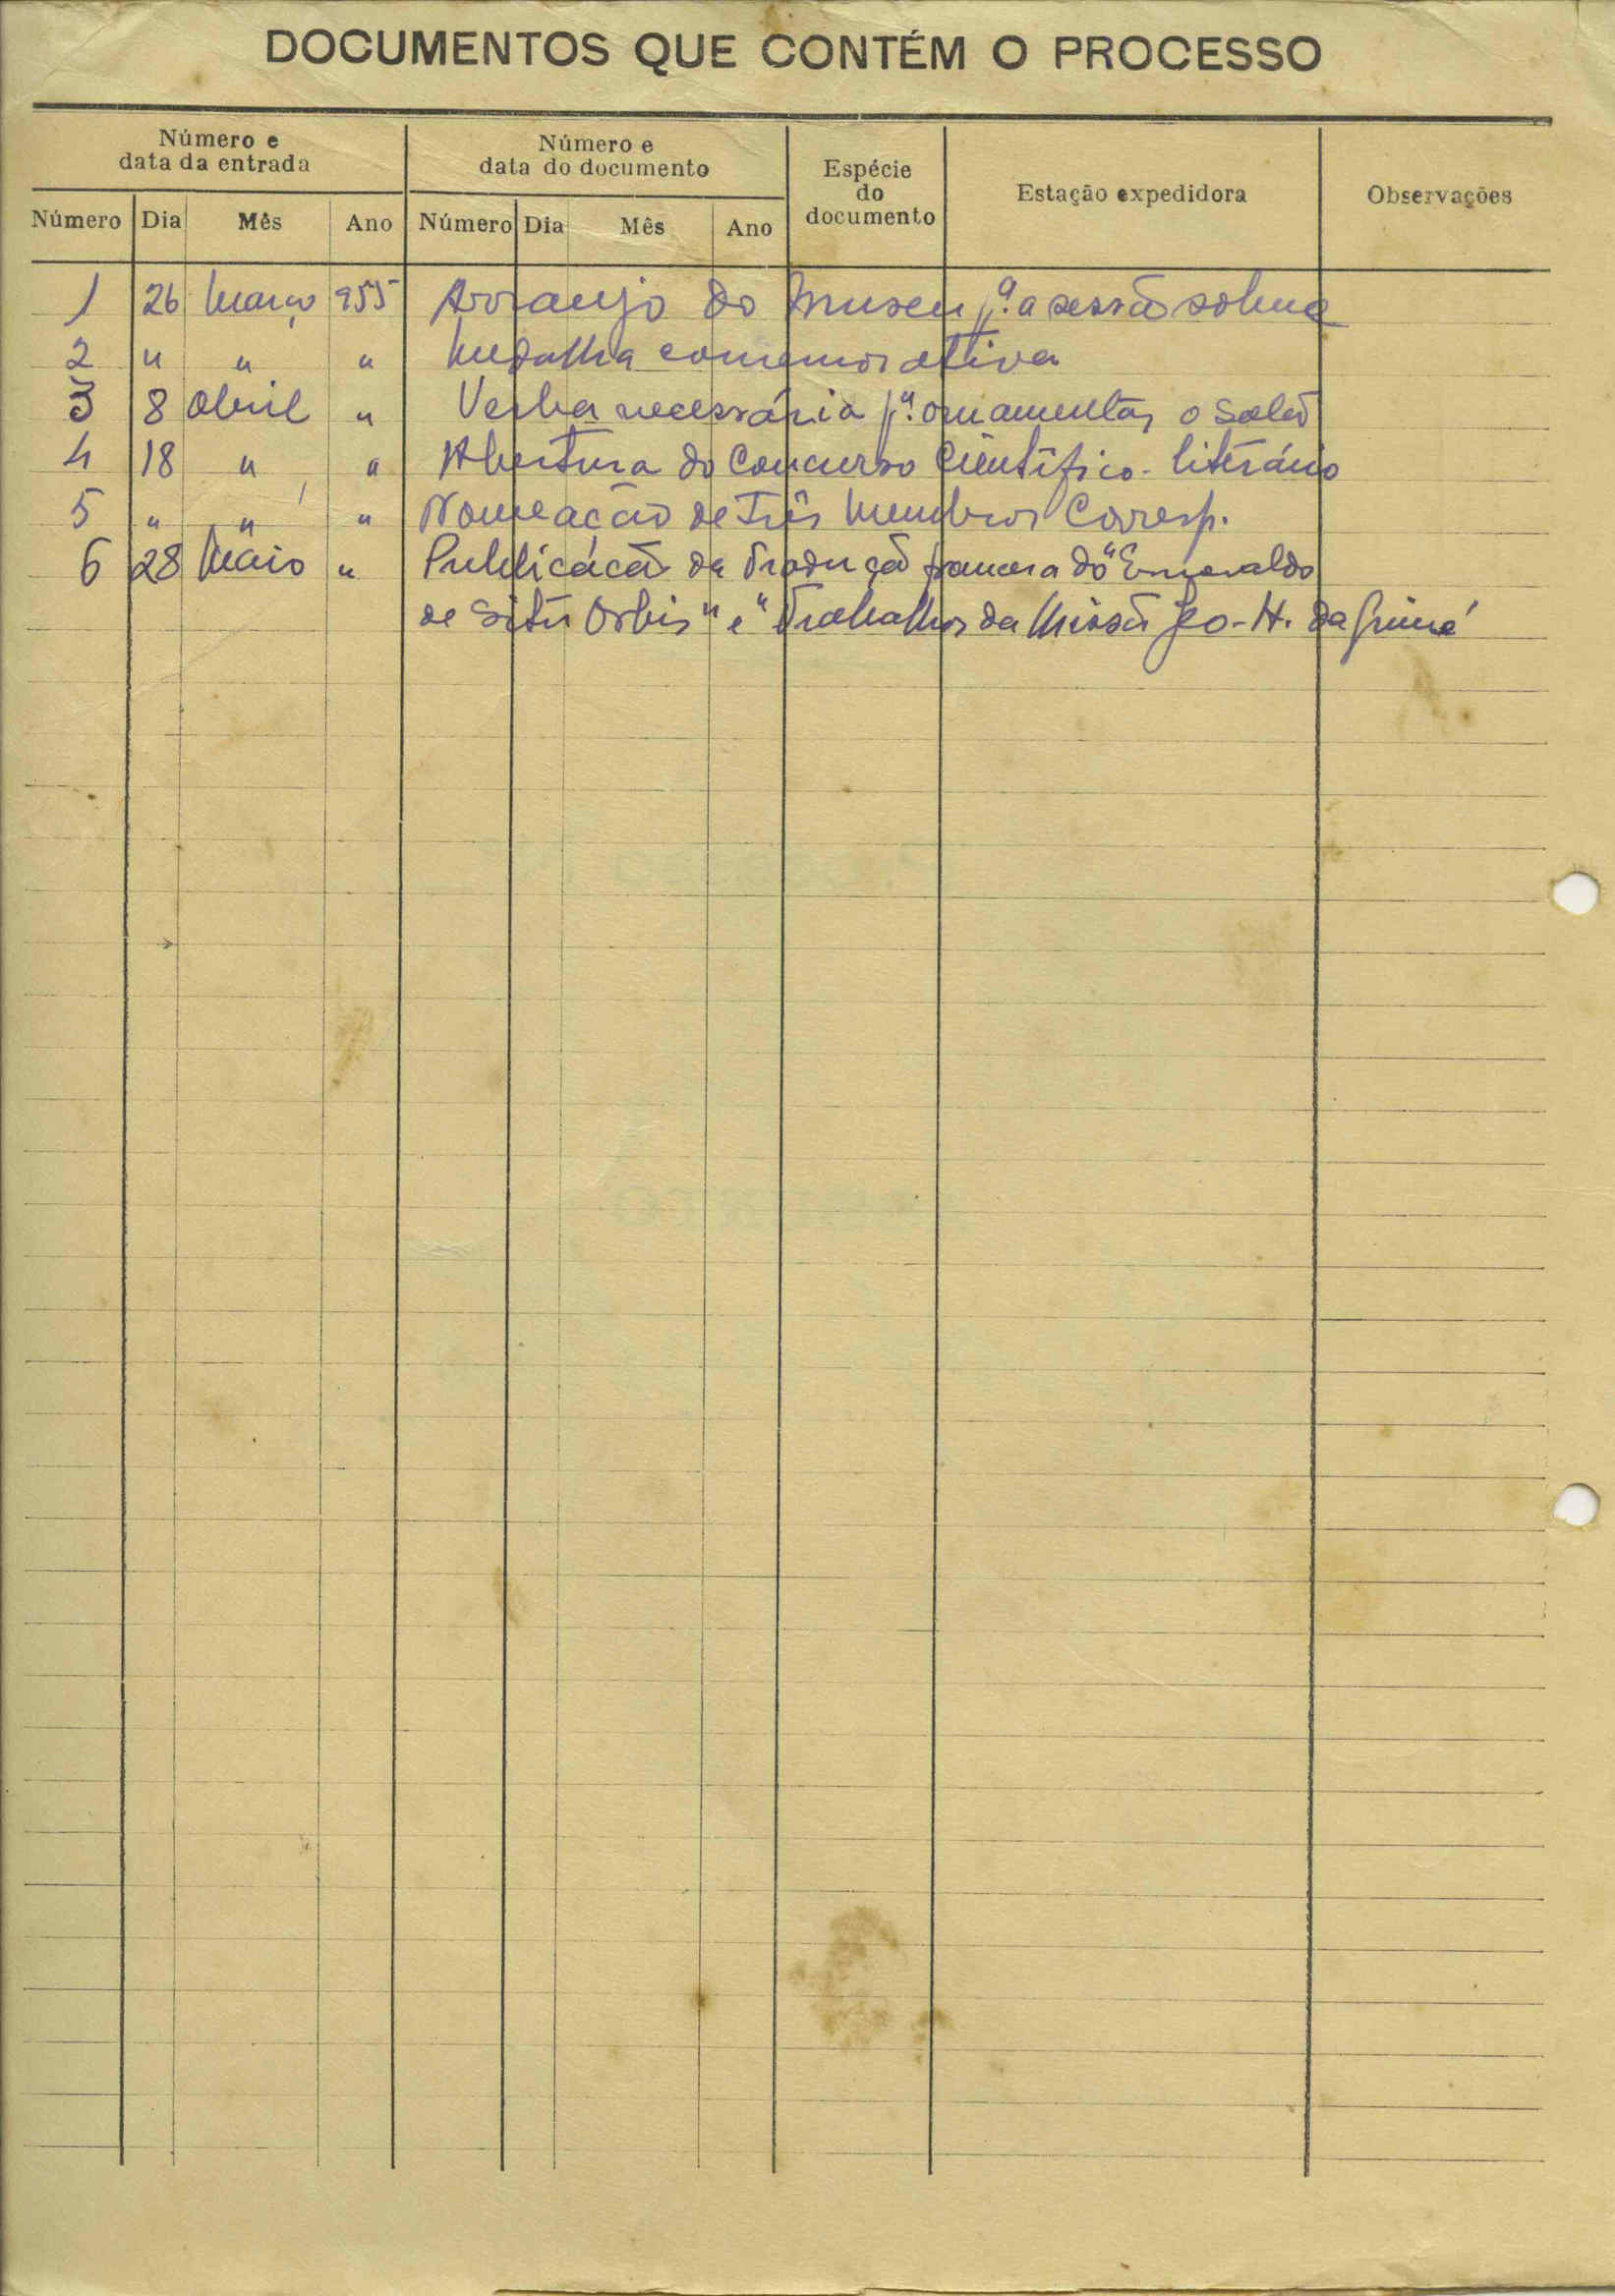 DOCUMENTOS QUE CONTÉM O PROCESSO
Número e data da entrada
Número e data do documento
Espécie do documento
Estação expedidora
Observações
Número Dia Mês Ano Número Dia Mês Ano
1 26 Março 955 Arranjo do Museu p.ª a sessão solene
2 " " " Medalha comemorativa
3 8 Abril " Verba necessária p.ª ornamentar o Salão
4 18 " " Abertura do Concurso Científico-literário
5 " " " Nomeação de Três Membros Corresp.
6 28 Maio " Publicação da Tradução francesa do "Esmeraldo
de Situ Orbis" e "Trabalhos da Missão Geo-H. da Guiné